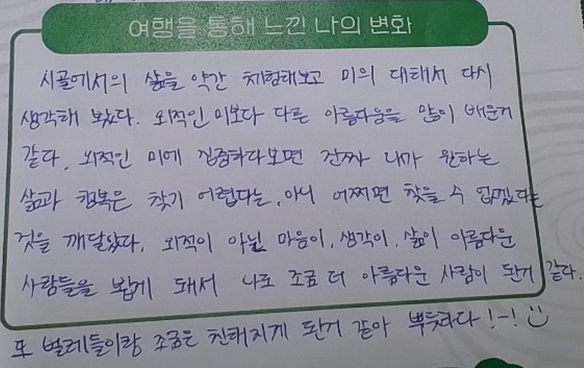 여행을 통해 느낀 나의 변화
시골에서의 삶을 약간 체험해보고 미의 대해서 다시
생각해 봤다. 외적인 미보다 다른 아름다움을 많이 배운거
같다. 외적인 미에 집중하다보면 진짜 나가 원하는
삶과 행복은 찾기 어렵다는, 아니 어쩌면 찾을 수 없겠다는
것을 깨달았다. 외적이 아닌 마음이, 생각이, 삶이 아름다운
사람들을 뵙게 돼서 나도 조금 더 아름다운 사람이 된거 같다.
또 벌레들이랑 조금은 친해지게 된거 같아 뿌듯하다!-!